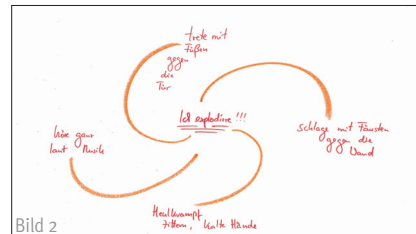 trete mit
Füßen
gegen
die
Tür
Ich explodiere !!!
schlage mit Fäusten
gegen die
Wand
höre ganz
laut Musik
Heulkrampf
Zittern, kalte Hände
Bild 2